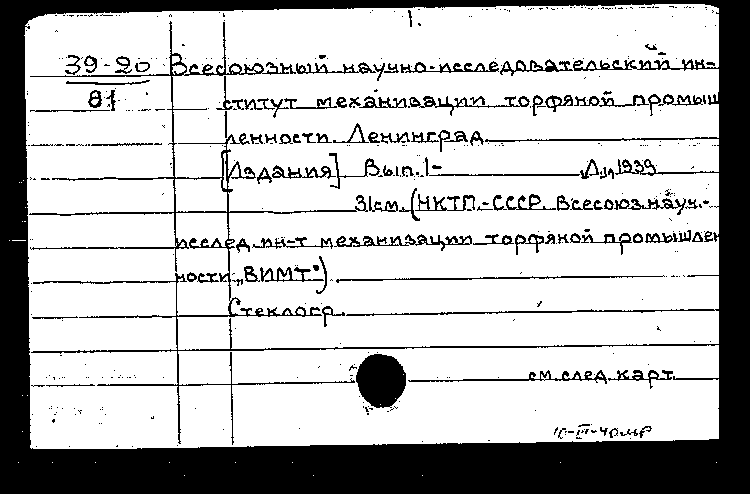 1.
39-20 Всесоюзный научно-исследовательский ин-
81 ститут механизации торфяной промыш
ленности. Ленинград.
[Издания]. Вып. 1- Л., 1939
31см. (НКТП.-СССР. Всесоюз. науч.-
исслед. ин-т механизации торфяной промышлен
ности „ВИМТ").
Стеклогр.
см. след. карт.
10-III-40